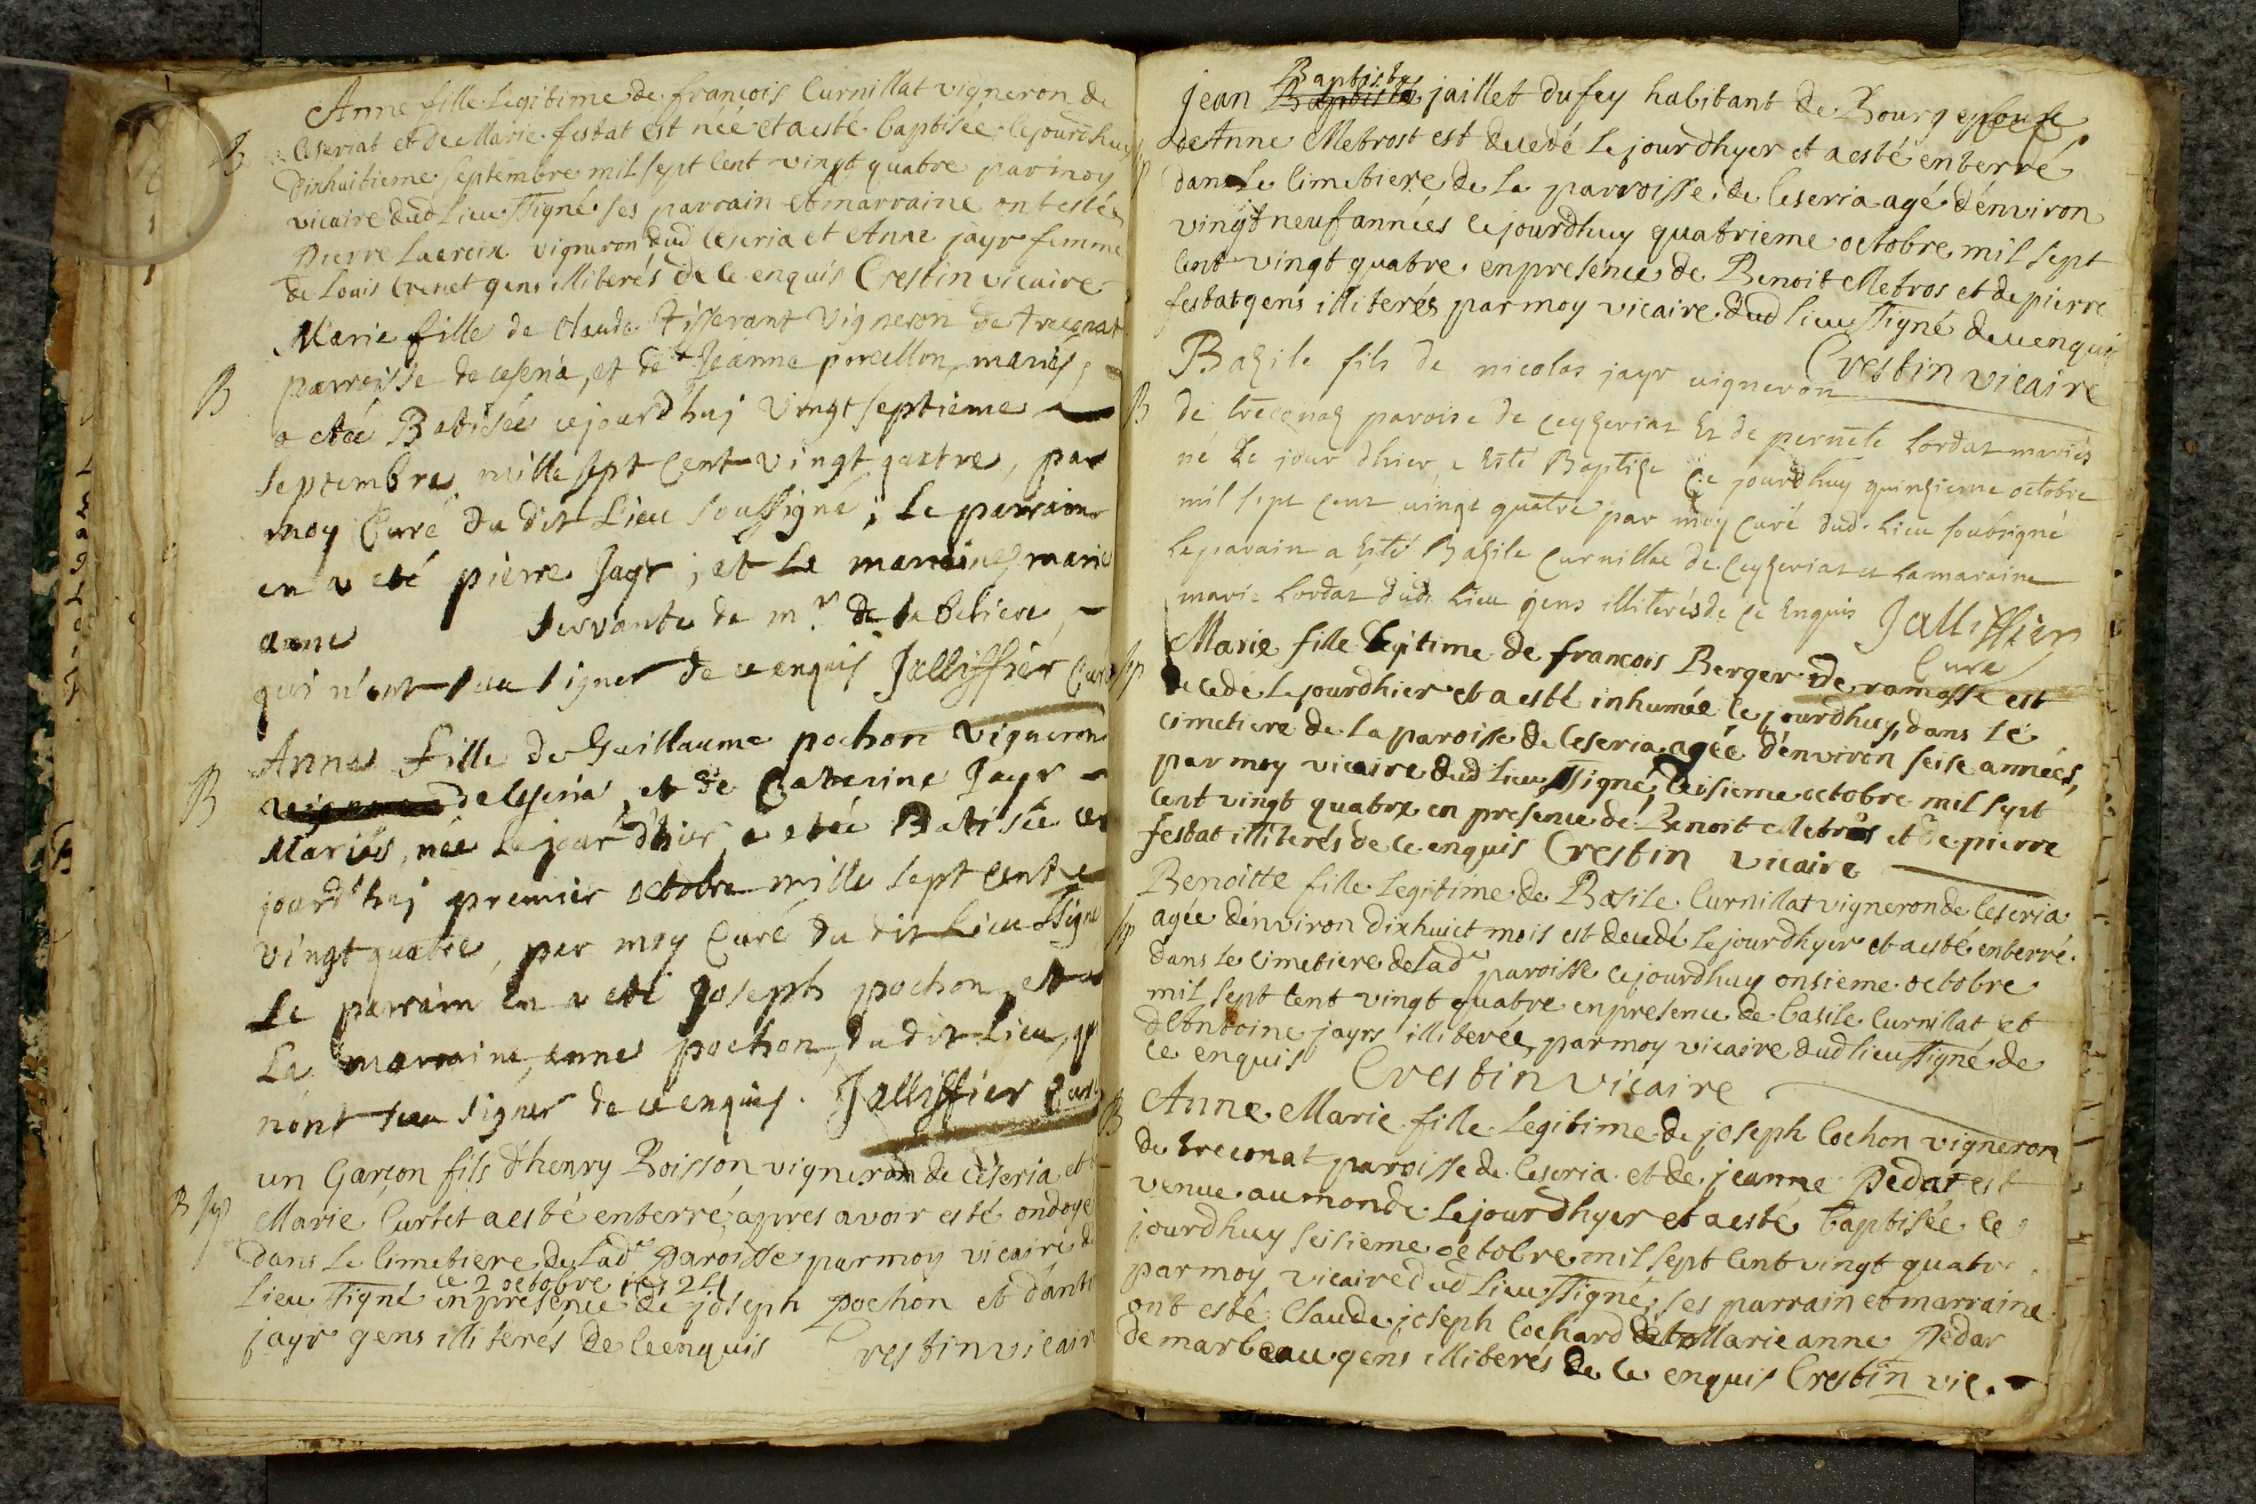 Anne fille Legitime de francois Curnillat vigneron de
B
Ceseriat et de Marie festat est née et a esté baptisée cejourdhuy
dixhuitieme septembre mil sept cent vingt quatre par moy
vicaire dud Lieu ssigné ses parrain et marraine ont estés
Pierre Lacroix vigneron dud Ceseria et Anne jayr femme
de Louis Cvenet gens illiterés de ce enquis Crestin vicaire
Marie fille de claude Tisserant Vigneron de treconat
B
parroisse de cesena, et de Jeanne porcellon, mariés,
a etée Batisée cejourd'huj vingt septieme
septembre mille sept cent vingt quatre, par
moy Curé du dit Lieu soussigné; Le parrain
en a eté pierre Jayr, et La marraine marie
anne servante de mr de la beliere
qui n'ont sceu signer de ce enquis Jalliffier Curé
Anne fille de Guillaume pochon Vigneron
B
de Ceseria, et de Catherine Jayr
Mariés, née Le jour d'hier, a etée Batisée ce
jourd'huj premier octobre mille sept cent
vingt quatre, par moy Curé du dit Lieu ssigné
Le parrain en a eté Joseph pochon, et
La marraine, anne pochon, du dit Lieu, qui
n'ont sceu signer de ce enquis. Jalliffier Curé
un Garçon fils d'henry Boisson vigneron de Ceseria et
B Sp
Marie Curtet a esté enterré, apres avoir esté ondoyé
dans Le Cimetiere de Lade Paroisse par moy vicaire d
ce 2 octobre 1724
Lieu ssigné en presence de joseph Pochon et d'ant
jayr gens illiterés de ce enquis Crestin vicair
Baptiste
jean Baptiste jaillet dufey habitant de Bourg epoux
Sp
de Anne Metrost est decedé Le jourdhyer et a esté enterré
dans Le Cimetiere de La parroisse de Ceseria agé d'environ
vingt neuf années cejourdhuy quatrieme octobre mil sept
cent vingt quatre en presence de Benoit Metros et de pierre
festat gens illiterés par moy vicaire dud Lieu ssigné de ce enquis
Crestin vicaire
Bazile fils de nicolas jayr vigneron
B
de treconaz paroise de ceyzeriat Et de pernete Lordat mariés
né Le jour dhier, a Esté Baptizé Ce jourdhuy quinzieme octobre
mil sept cent vingt quatre par moy curé dud. Lieu soubsigné
Le parain a Esté Bazile Curnillat de Ceyzeriat et La maraine
marie Lordat dud Lieu gens illiterés de ce Enquis Jalliffier
Curé
Marie fille Legitime de francois Berger de ramasse est
Sp
decedé Le jourdhier et a esté inhumée ce jourdhuy, dans Le
cimetiere de La paroisse de Ceseria, agée d'environ seise années,
par moy vicaire dud Lieu ssigné, seisieme octobre mil sept
cent vingt quatre en presence de Benoit Metros et de pierre
festat illiterés de ce enquis Crestin vicaire
Benoitte fille Legitime de Basile Curnillat vigneron de Ceseria
Sp
agée d'environ dixhuict mois est decedé Le jourdhyer et a esté enterré
dans Le cimetiere de Lade paroisse cejourdhuy onsieme octobre
mil sept cent vingt quatre en presence de basile Curnillat et
d'Antoine jayrs illiterés, par moy vicaire dud Lieu ssigné de
ce enquis Crestin vicaire
B
Anne Marie fille Legitime de joseph Cochon vigneron
de treconat paroisse de Ceseria et de jeanne Pedat est
venue au monde Le jourdhyer et a esté baptisée ce
jourdhuy seisieme octobre mil sept cent vingt quatre
par moy vicaire dud Lieu ssigné, ses parrain et marraine
ont esté Claude joseph Cochard et Marie anne Pedar
de marbeau gens illiterés de ce enquis Crestin vic.